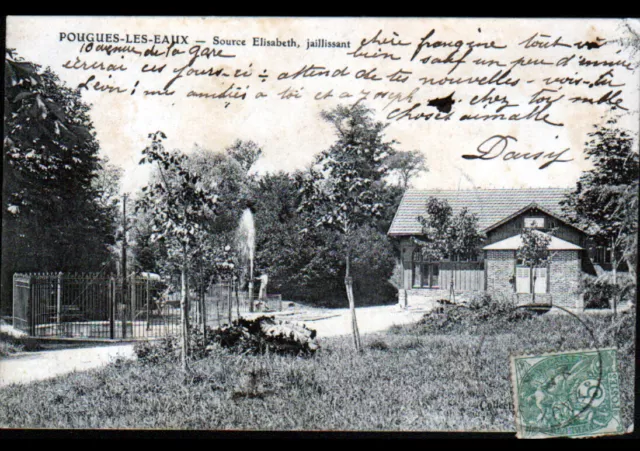 POUGUES-LES-EAUX — Source Elisabeth, jaillissant
10 avenue de la gare
chère françine tout va
bien sauf un peu d'ennue
écrirai ces jours-ci attend de tes nouvelles vois-tu
Léon! mes amitiés a toi et a Joseph chez toi mille
choses aimable
Daisy
5